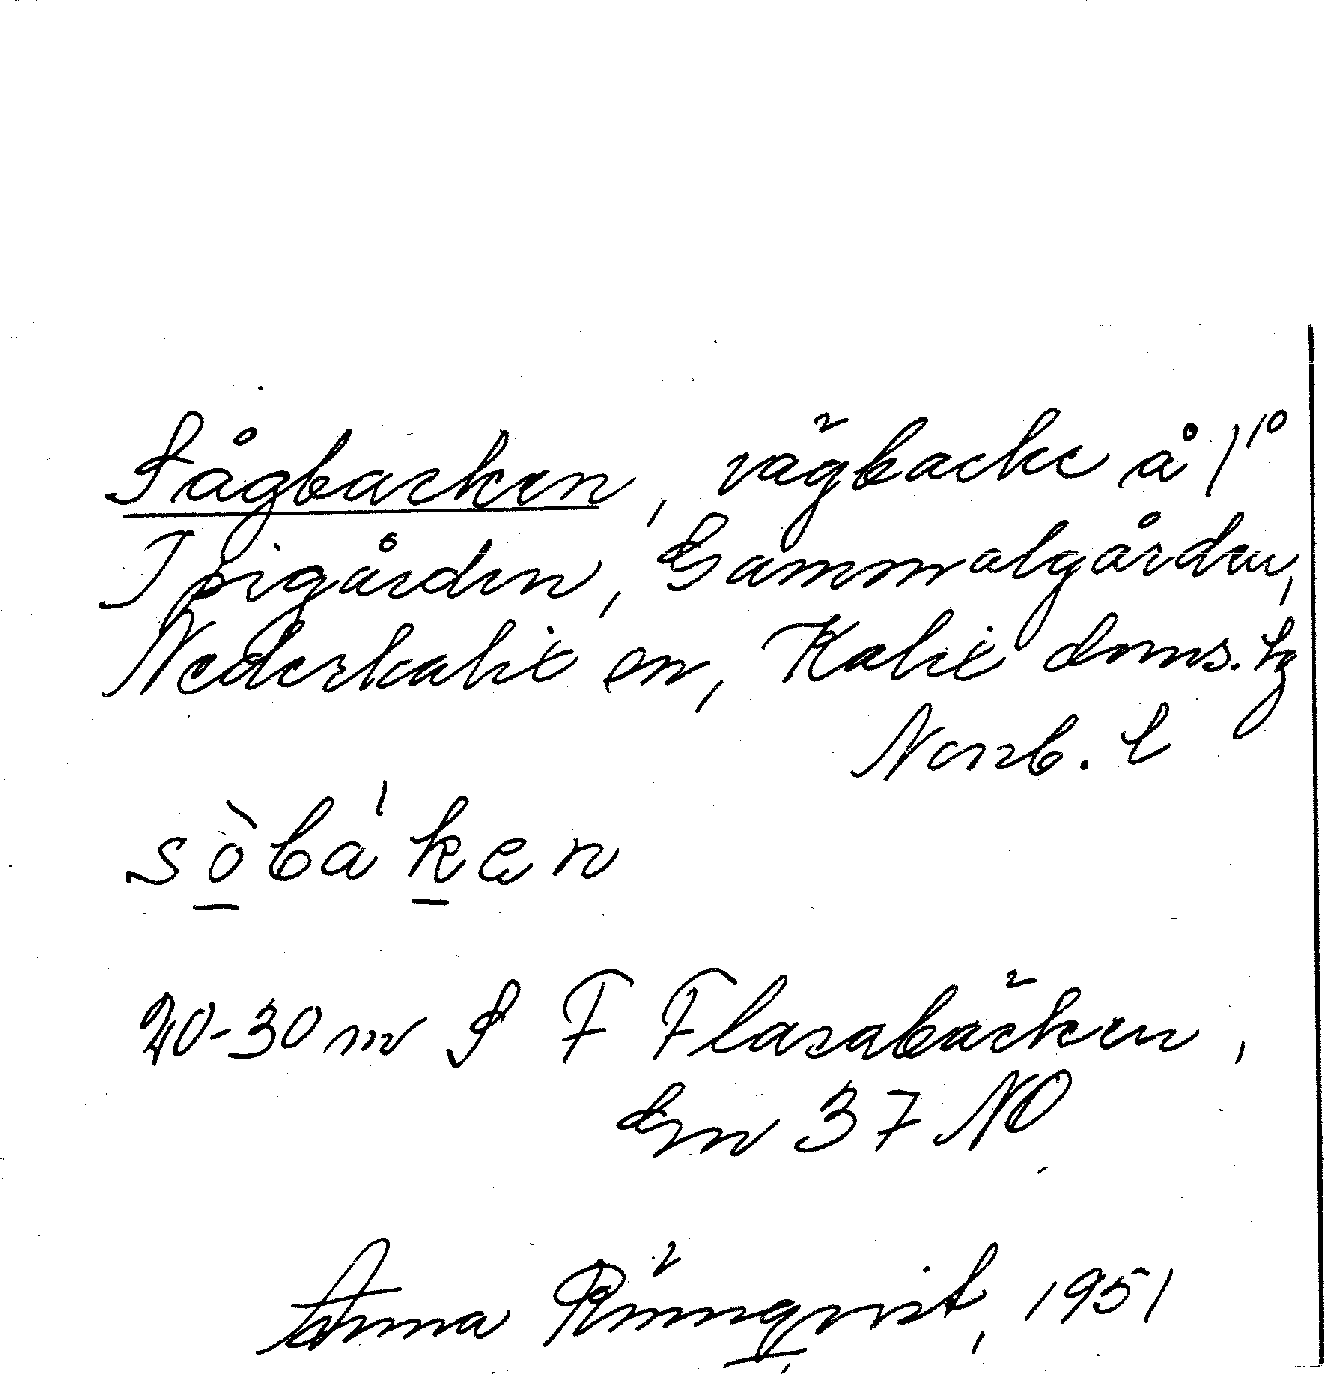 Sågbacken, vägbacke å 1/10
Spigården, Gammalgården,
Nederkalix sn, Kalix doms. tg
Norrb. l
sòbáken
20-30 m S F Flasabäcken,
Gm 37 NO
Anna Rönnqvist, 1951